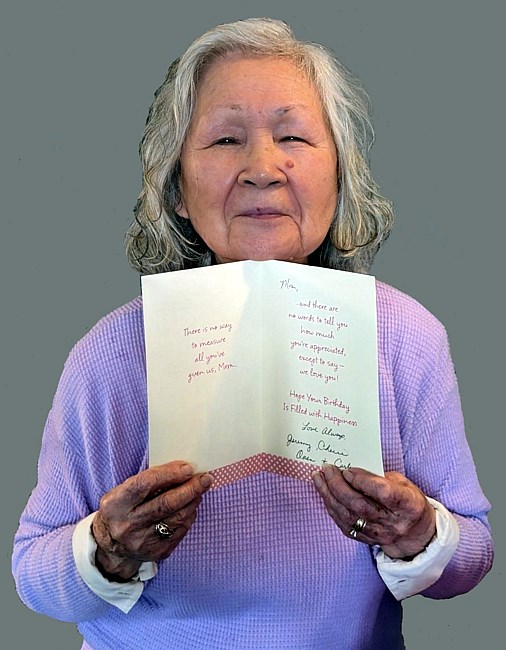 There is no way
to measure
all you've
given us, Mom...
Mom,
...and there are
no words to tell you
how much
you're appreciated,
except to say—
we love you!
Hope Your Birthday
Is Filled with Happiness
Love Always,
Jeremy,